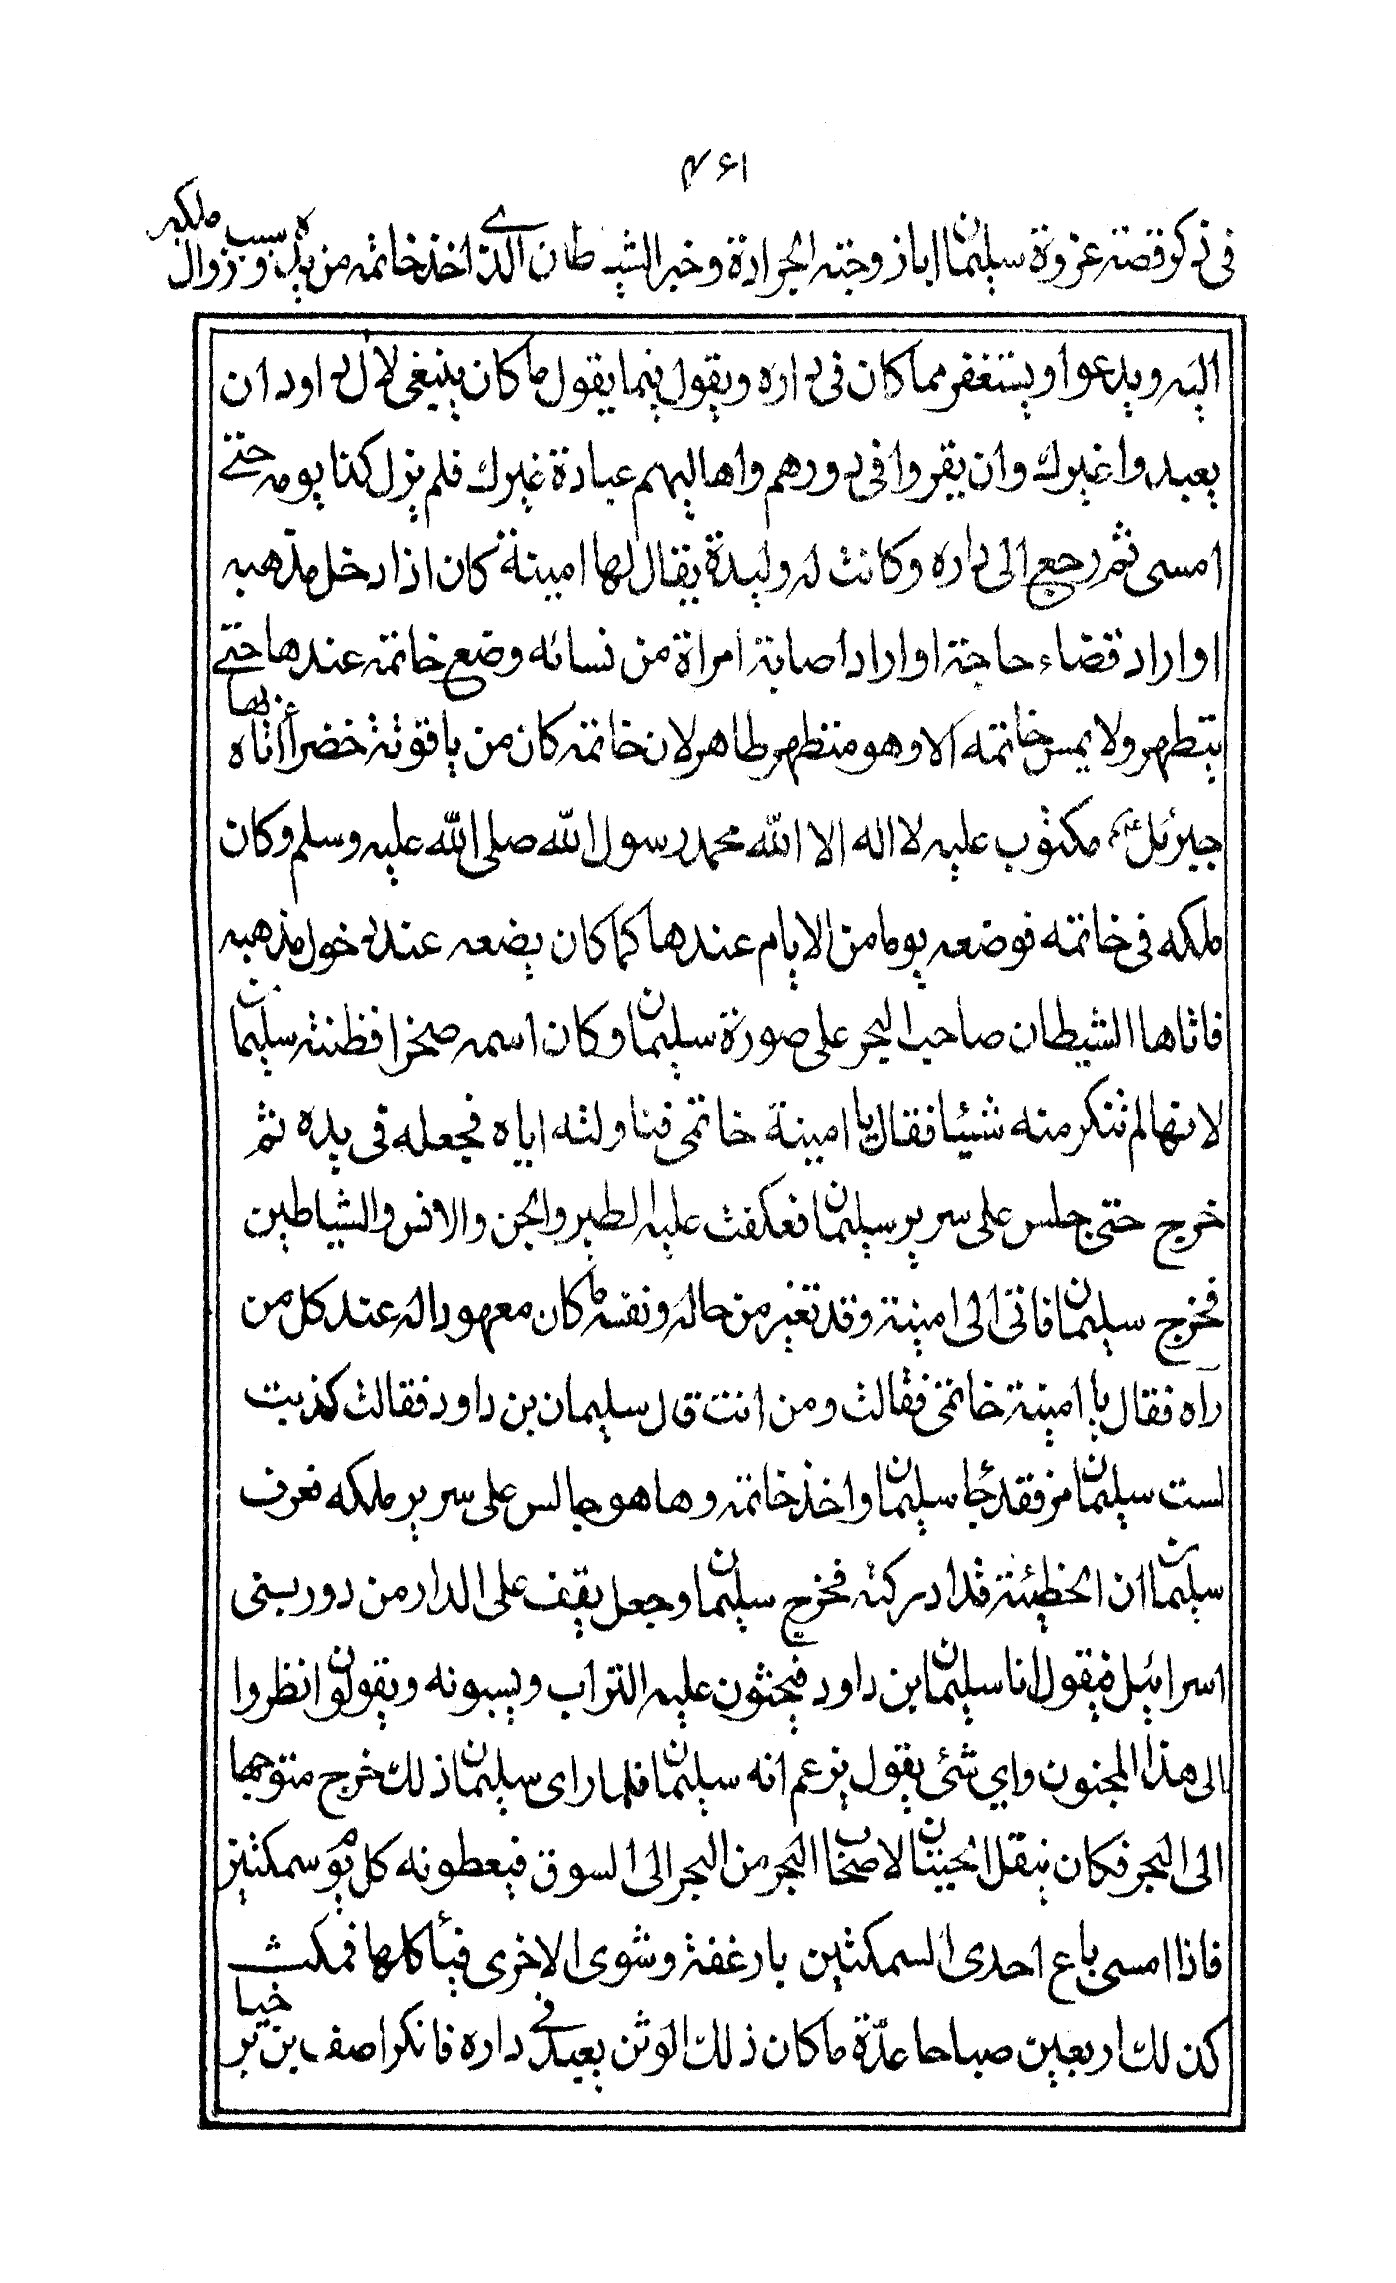 ۴۶۱
في ذكر قصة غزوة سليمان ابا زوجته الجرادة وخبر الشيطان الذي اخذ خاتمه من يده وسبب زوال ملكه
اليه ويدعوا ويستغفر مما كان في داره ويقول فيما يقول ما كان ينبغي لال داود ان
يعبدوا غيرك وان يقروا في دورهم واهاليهم عبادة غيرك فلم يزل كذا يومه حتى
امسى ثم رجع الى داره وكانت له وليدة يقال لها امينة كان اذا دخل مذهبه
او اراد قضاء حاجة او اراد اصابة امراة من نسائه وضع خاتمه عندها حتى
يتطهر ولا يمس خاتمه الا وهو متطهر طاهر لان خاتمه كان من ياقوتة خضراء اتاه بها
جبرئل عم مكتوب عليه لا اله الا الله محمد رسول الله صلى الله عليه وسلم وكان
ملكه في خاتمه فوضعه يوما من الايام عندها كما كان يضعه عند دخول مذهبه
فاتاها الشيطان صاحب البحر على صورة سليمان وكان اسمه صخرا فظنته سليمان
لانها لم تنكر منه شيئا فقال يا امينة خاتمي فناولته اياه فجعله في يده ثم
خرج حتى جلس على سرير سليمان فعكفت عليه الطير والجن والانس والشياطين
فخرج سليمان فاتى الى امينة وقد تغير من حاله ونفسه ما كان معهودا له عند كل من
راه فقال يا امينة خاتمي فقالت ومن انت قال سليمان بن داود فقالت كذبت
لست سليمان مر فقد جاء سليمان واخذ خاتمه وها هو جالس على سرير ملكه فعرف
سليمان ان الخطيئة قد ادركته فخرج سليمان وجعل يقف على الدار من دور بني
اسرائيل فيقول انا سليمان بن داود فيحثون عليه التراب ويسبونه ويقولون انظروا
الى هذا المجنون واي شئ يقول يزعم انه سليمان فلما راى سليمان ذلك خرج متوجها
الى البحر فكان ينقل الحيتان لاصحاب البحر من البحر الى السوق فيعطونه كل يوم سمكتين
فاذا امسى باع احدى السمكتين بارغفة وشوى الاخرى فيأكلها فمكث
كذلك اربعين صباحا عدّة ما كان ذلك الوثن يعبد في داره فانكر اصف بن برخيا